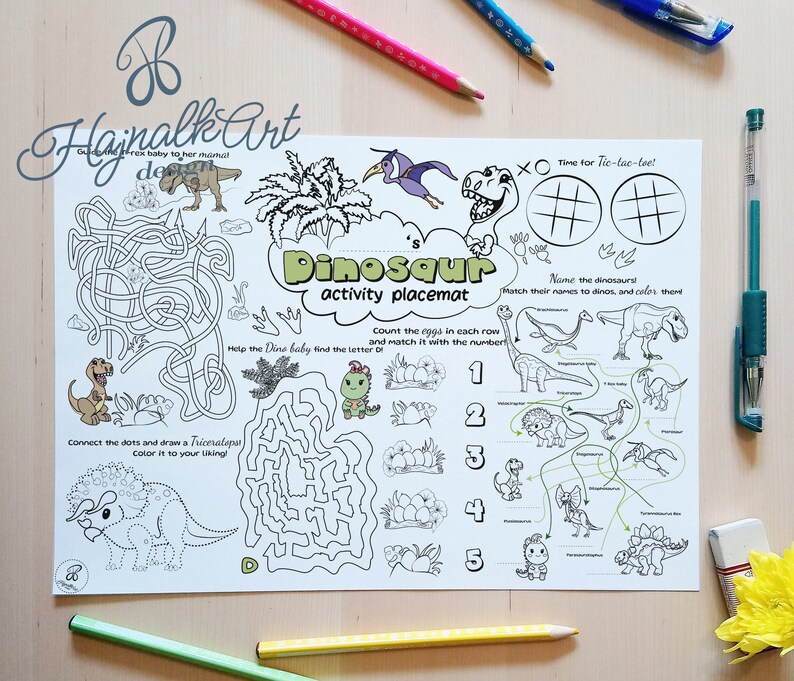 HajnalkArt
design
Guide the T-rex baby to her mama!
Time for Tic-tac-toe!
's
Dinosaur
activity placemat
Name the dinosaurs!
Match their names to dinos, and color them!
Count the eggs in each row
and match it with the number!
Help the Dino baby find the letter D!
Connect the dots and draw a Triceratops!
Color it to your liking!
1
2
3
4
5
D
Brachiosaurus
Stegosaurus baby
T Rex baby
Triceratops
Velociraptor
Pterosaur
Stegosaurus
Dilophosaurus
Plesiosaurus
Tyrannosaurus Rex
Parasaurolophus